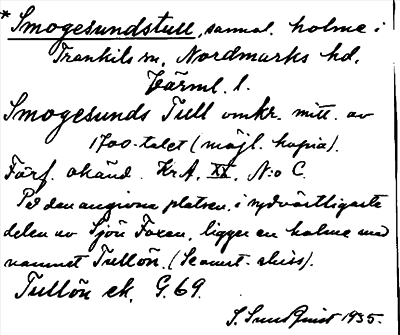 * Smogesundstull, sannol. holme i
Trankils sn, Nordmarks hd,
Värml. l.
Smogesunds Tull omkr. mitt. av
1700-talet (möjl. kopia).
Förf. okänd. Kr A, XX, N:o C.
På den angivna platsen, i sydvästligaste
delen av Sjön Foxen, ligger en holme med
namnet Tullön. (Se anst. skiss).
Tullön ek. G. 69.
S. Sundquist 1935.